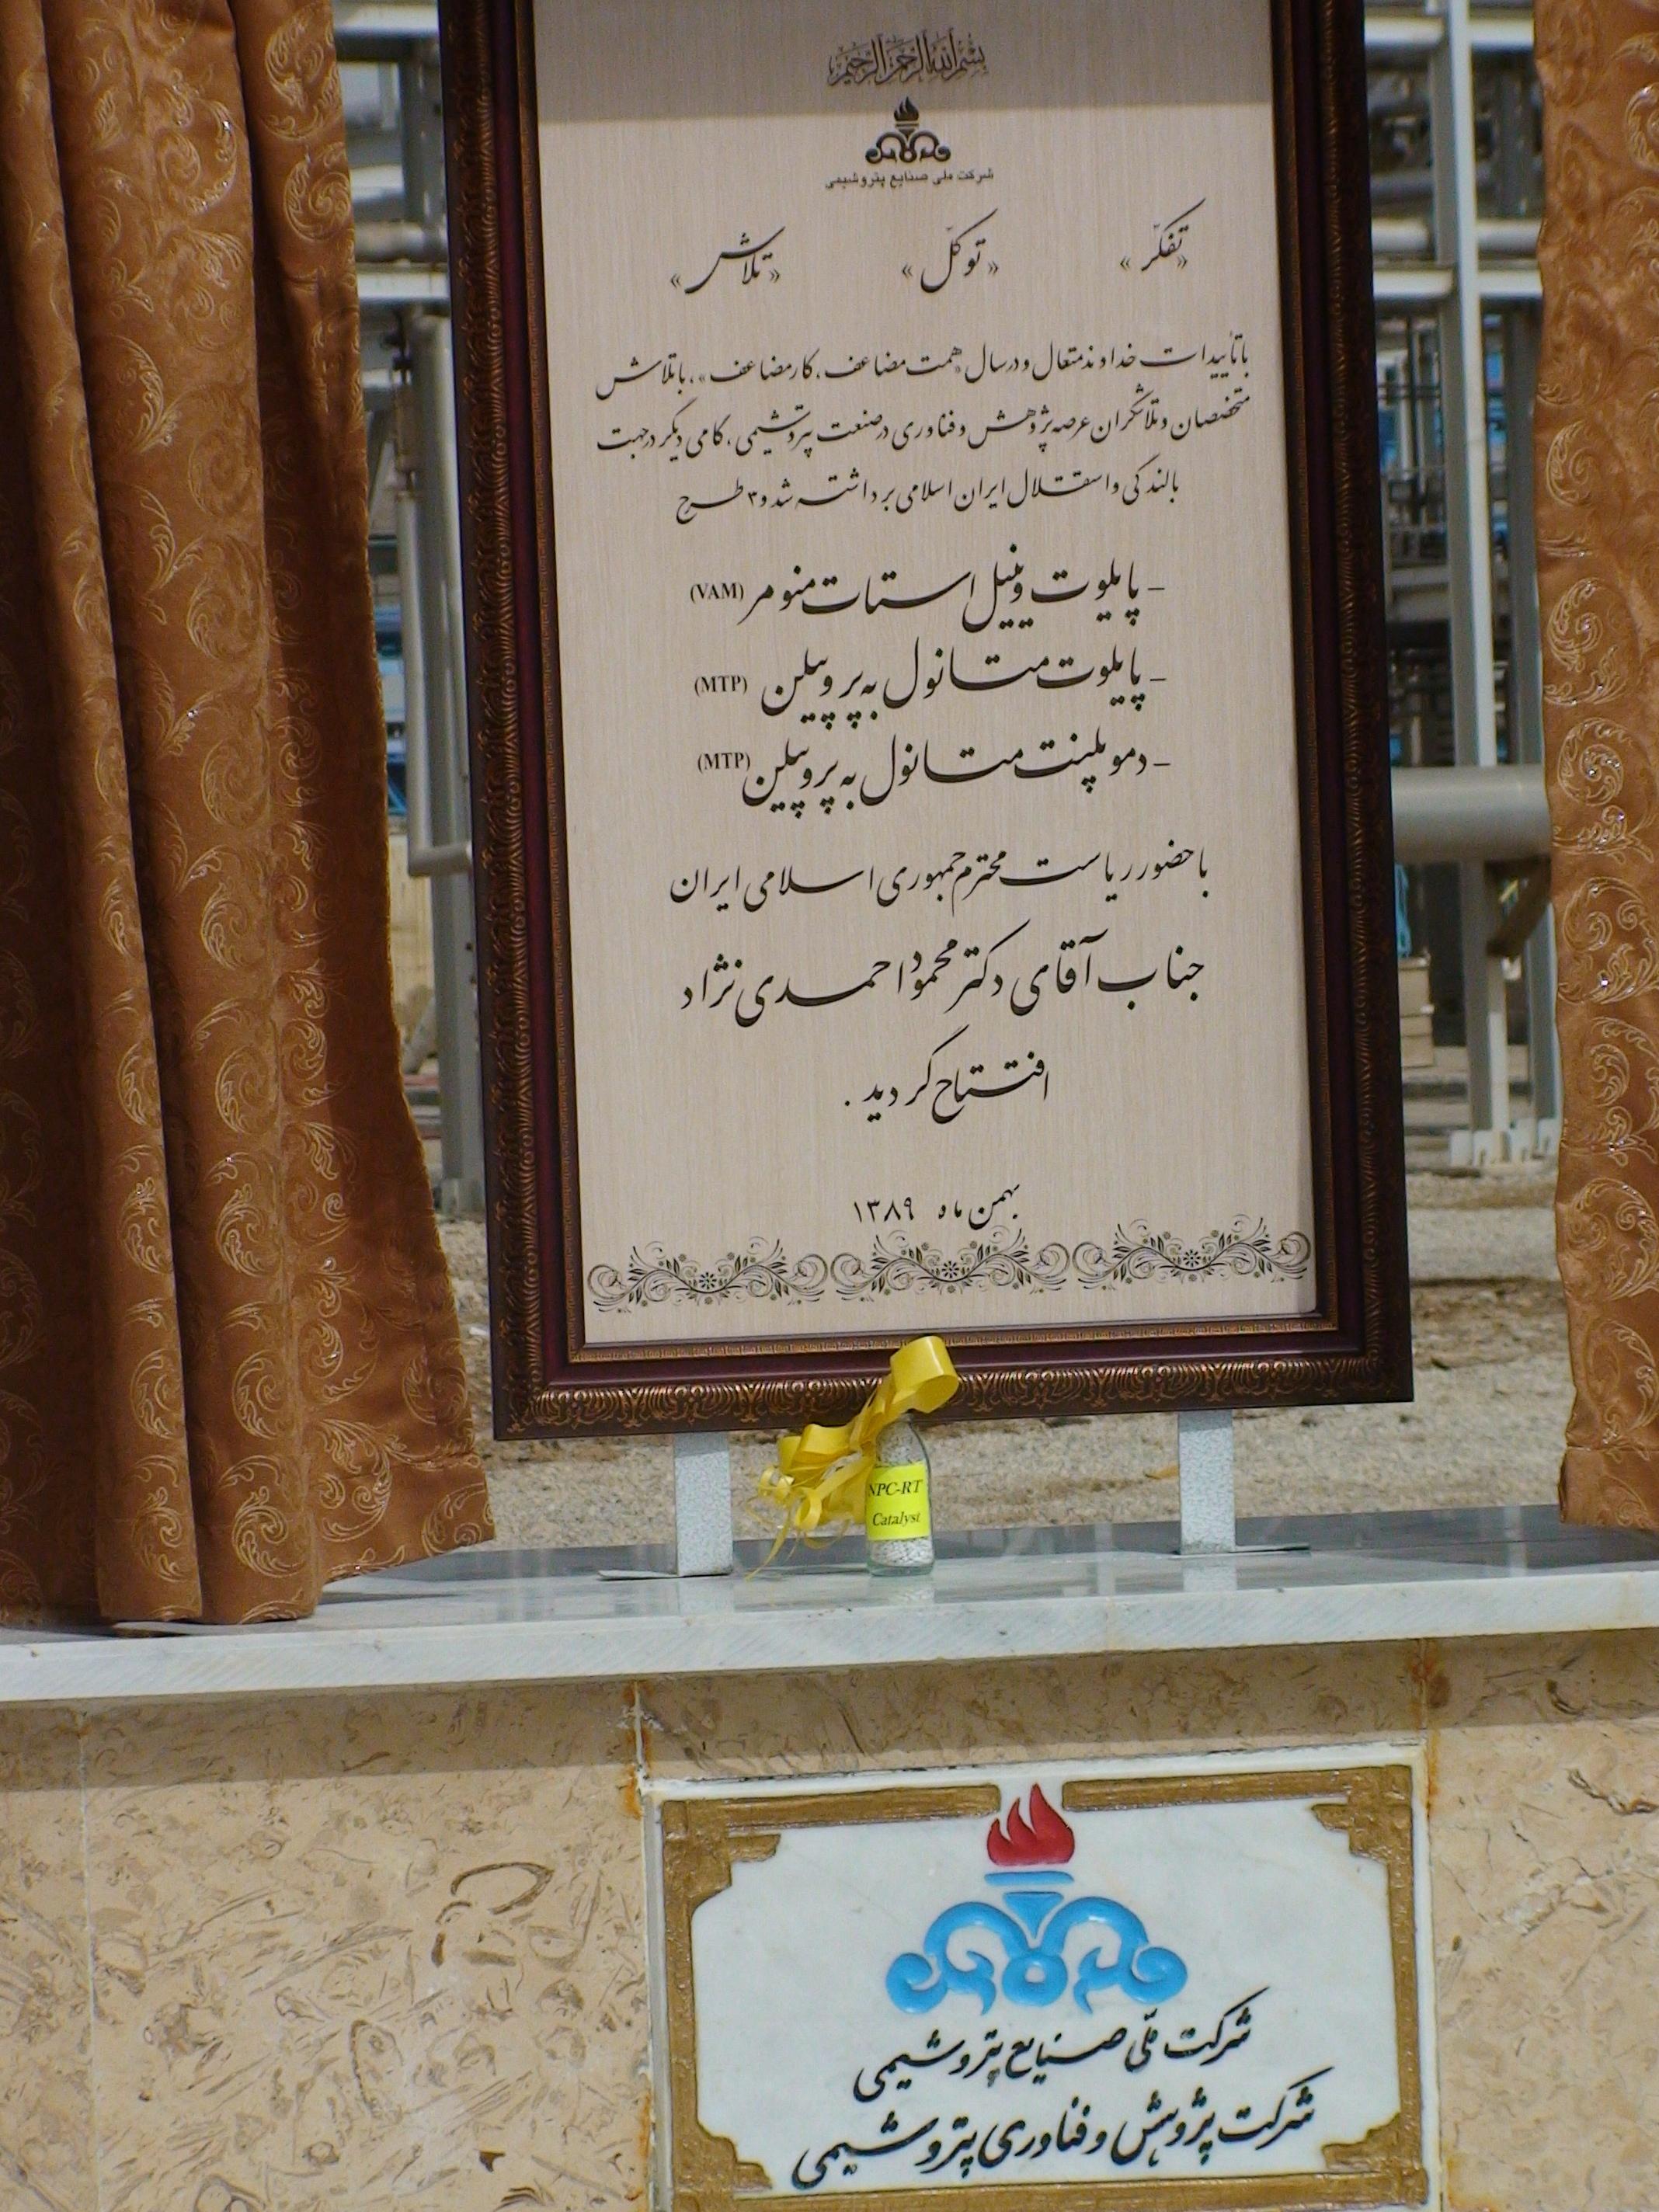 بسم الله الرحمن الرحیم
شرکت ملی صنایع پتروشیمی
«تفکّر» «توکّل» «تلاش»
با تأییدات خداوند متعال و در سال «همت مضاعف، کار مضاعف»، با تلاش
متخصصان و تلاشگران عرصه پژوهش و فناوری در صنعت پتروشیمی، گامی دیگر در جهت
بالندگی و استقلال ایران اسلامی برداشته شد و ۳ طرح
- پایلوت وینیل استات منومر (VAM)
- پایلوت متانول به پروپیلن (MTP)
- دمو پلنت متانول به پروپیلن (MTP)
با حضور ریاست محترم جمهوری اسلامی ایران
جناب آقای دکتر محمود احمدی نژاد
افتتاح گردید.
بهمن ماه ۱۳۸۹
NPC-RT
Catalyst
شرکت ملّی صنایع پتروشیمی
شرکت پژوهش و فناوری پتروشیمی